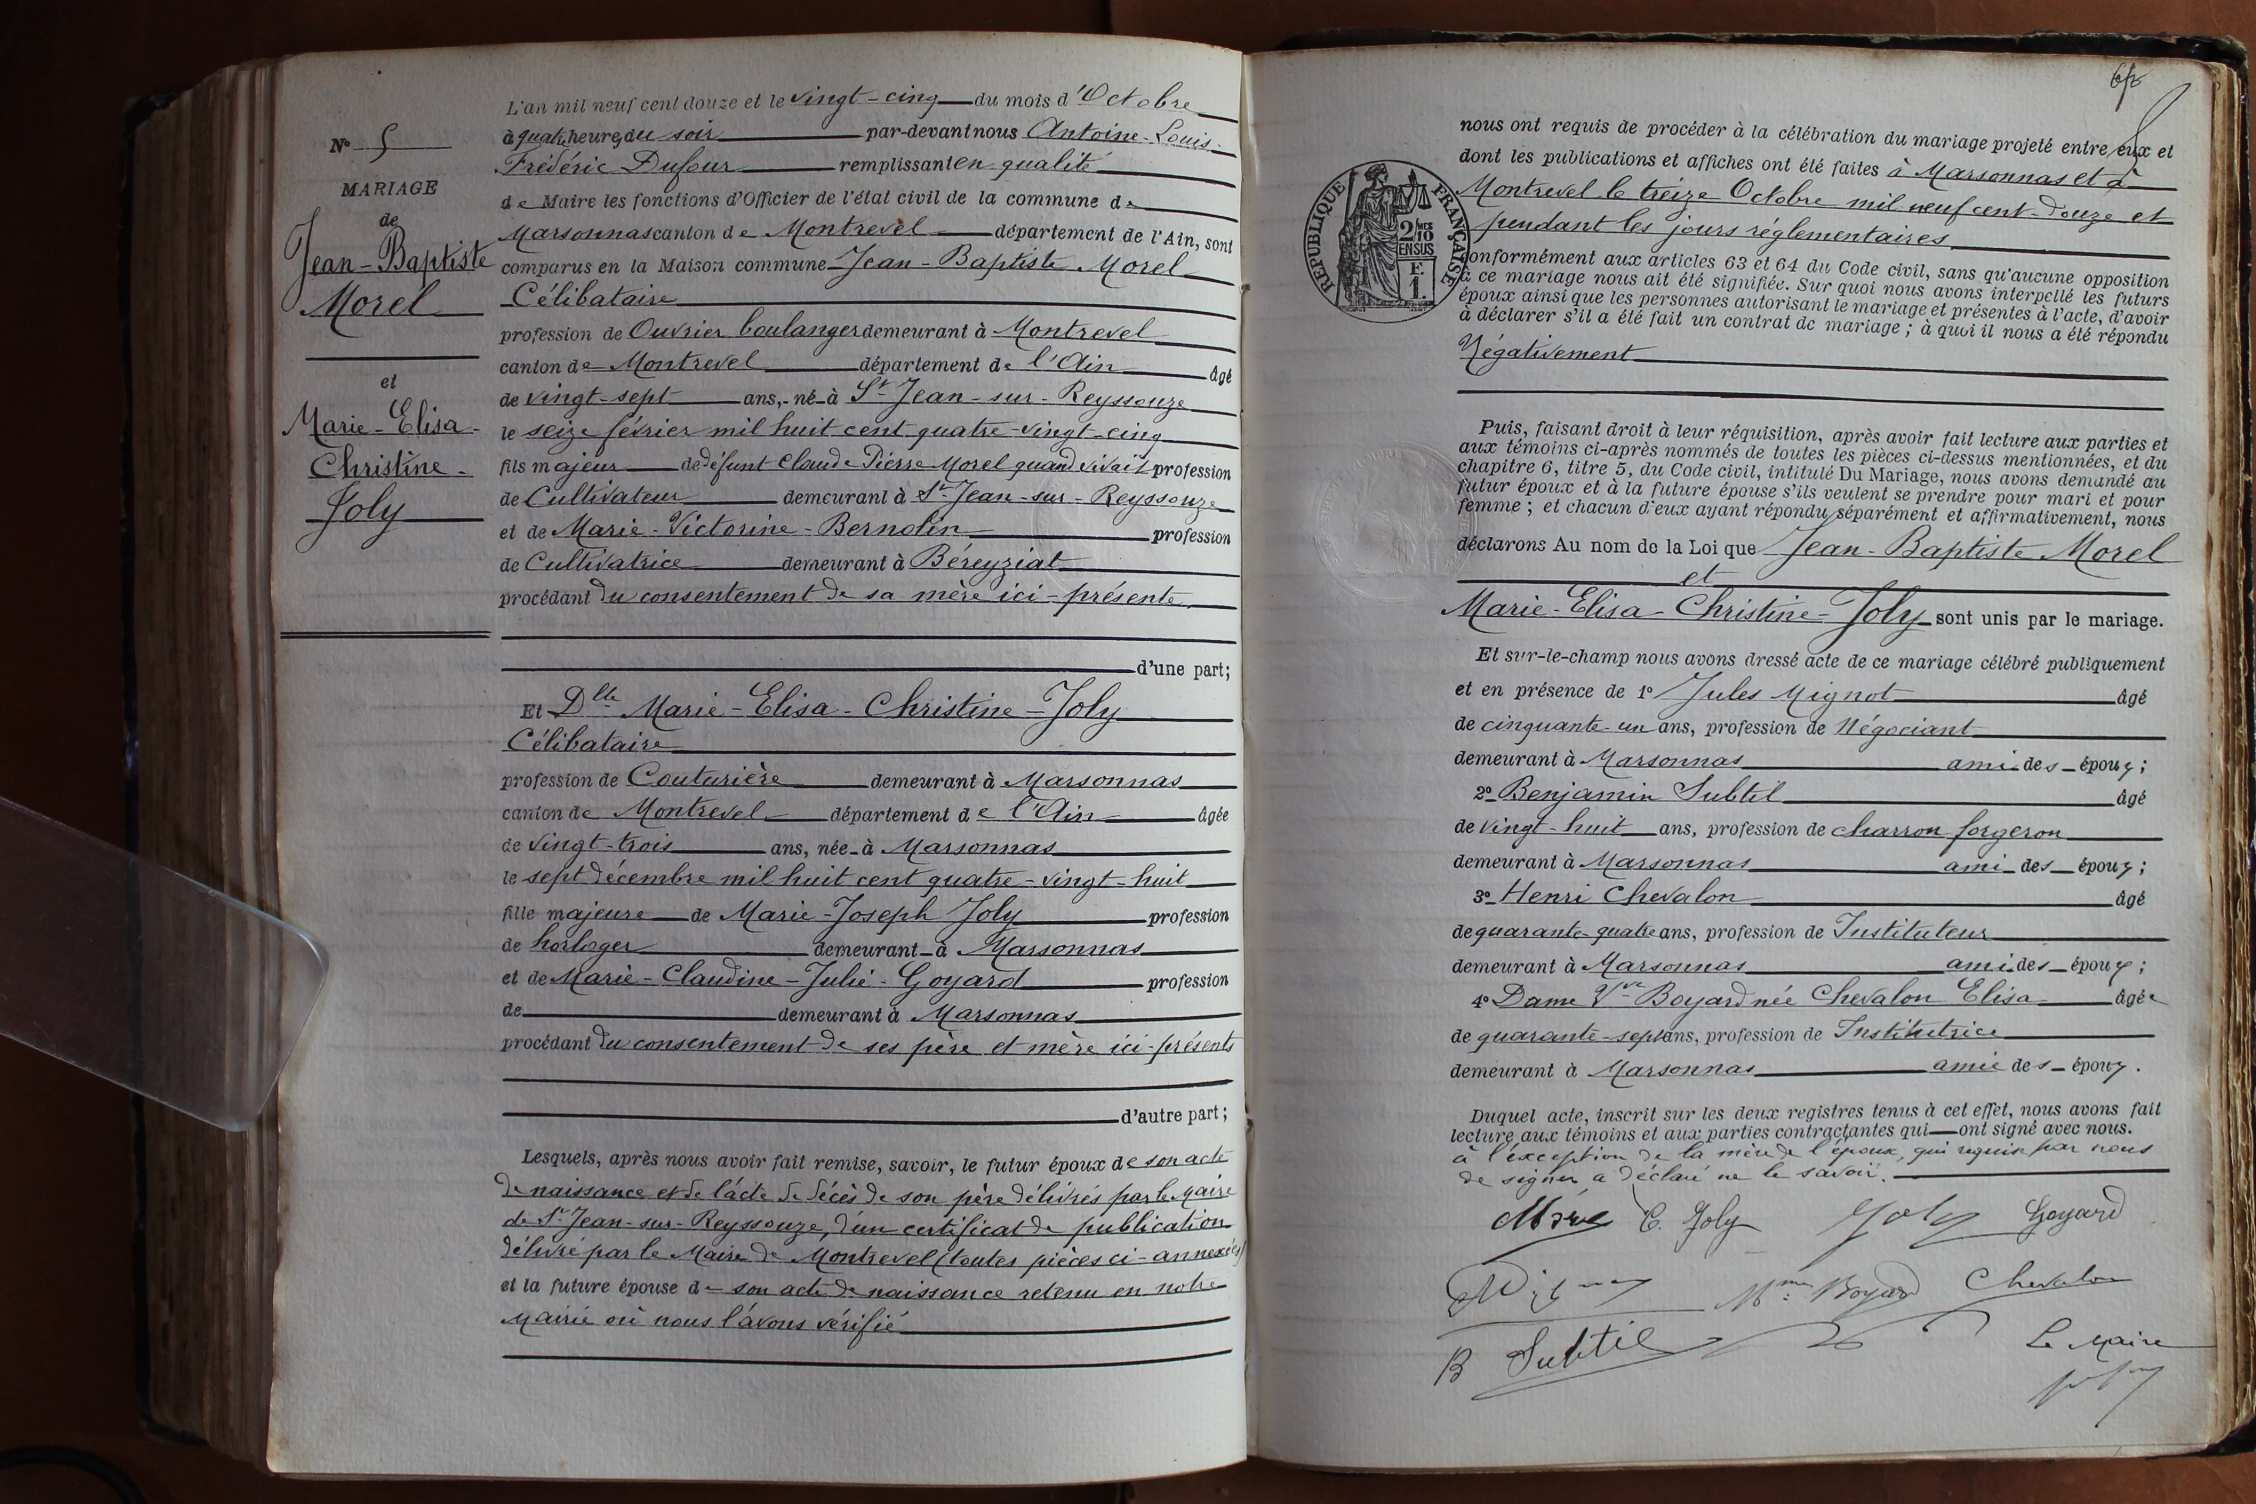 N° 5
MARIAGE
de
Jean-Baptiste
Morel
et
Marie-Elisa-
Christine-
Joly
L'an mil neuf cent douze et le vingt-cinq du mois d'Octobre
à quatre heures du soir par-devant nous Antoine-Louis-
Frédéric Dufour remplissant en qualité
de Maire les fonctions d'Officier de l'état civil de la commune de
Marsonnas canton de Montrevel département de l'Ain, sont
comparus en la Maison commune Jean-Baptiste Morel
Célibataire
profession de Ouvrier boulanger demeurant à Montrevel
canton de Montrevel département de l'Ain âgé
de vingt-sept ans, né à St-Jean-sur-Reyssouze
le seize février mil huit cent quatre-vingt-cinq
fils majeur de défunt Claude Pierre Morel quand vivait profession
de Cultivateur demeurant à St-Jean-sur-Reyssouze
et de Marie-Victorine-Bernolin profession
de Cultivatrice demeurant à Béreyziat
procédant du consentement de sa mère ici-présente
d'une part;
Et Dlle Marie-Elisa-Christine-Joly
Célibataire
profession de Couturière demeurant à Marsonnas
canton de Montrevel département de l'Ain âgée
de vingt-trois ans, née à Marsonnas
le sept décembre mil huit cent quatre-vingt-huit
fille majeure de Marie-Joseph Joly profession
de horloger demeurant à Marsonnas
et de Marie-Claudine-Julie-Goyard profession
de demeurant à Marsonnas
procédant du consentement de ses père et mère ici-présents
d'autre part;
Lesquels, après nous avoir fait remise, savoir, le futur époux de son acte
de naissance et de l'acte de décès de son père délivrés par le Maire
de St-Jean-sur-Reyssouze, d'un certificat de publication
délivré par le Maire de Montrevel (toutes pièces ci-annexées)
et la future épouse de son acte de naissance retenu en notre
Mairie où nous l'avons vérifié
nous ont requis de procéder à la célébration du mariage projeté entre eux et
dont les publications et affiches ont été faites à Marsonnas et à
Montrevel le treize Octobre mil neuf cent-douze et
pendant les jours réglementaires
conformément aux articles 63 et 64 du Code civil, sans qu'aucune opposition
à ce mariage nous ait été signifiée. Sur quoi nous avons interpellé les futurs
époux ainsi que les personnes autorisant le mariage et présentes à l'acte, d'avoir
à déclarer s'il a été fait un contrat de mariage ; à quoi il nous a été répondu
Négativement
RÉPUBLIQUE FRANÇAISE
2/10MES
EN SUS
F.
1.
Puis, faisant droit à leur réquisition, après avoir fait lecture aux parties et
aux témoins ci-après nommés de toutes les pièces ci-dessus mentionnées, et du
chapitre 6, titre 5, du Code civil, intitulé Du Mariage, nous avons demandé au
futur époux et à la future épouse s'ils veulent se prendre pour mari et pour
femme ; et chacun d'eux ayant répondu séparément et affirmativement, nous
déclarons Au nom de la Loi que Jean-Baptiste Morel
et
Marie-Elisa-Christine-Joly sont unis par le mariage.
Et sur-le-champ nous avons dressé acte de ce mariage célébré publiquement
et en présence de 1° Jules Mignot âgé
de cinquante-un ans, profession de Négociant
demeurant à Marsonnas ami des époux ;
2° Benjamin Subtil âgé
de vingt-huit ans, profession de charron-forgeron
demeurant à Marsonnas ami des époux ;
3° Henri Chevalon âgé
de quarante-quatre ans, profession de Instituteur
demeurant à Marsonnas ami des époux ;
4° Dame Vve Boyard née Chevalon Elisa âgée
de quarante-sept ans, profession de Institutrice
demeurant à Marsonnas amie des époux .
Duquel acte, inscrit sur les deux registres tenus à cet effet, nous avons fait
lecture aux témoins et aux parties contractantes qui ont signé avec nous.
à l'exception de la mère de l'époux, qui requise par nous
de signer a déclaré ne le savoir.
Morel E. Joly Joly Goyard
Mignot Mme Boyard Chevalon
B Subtil Le Maire